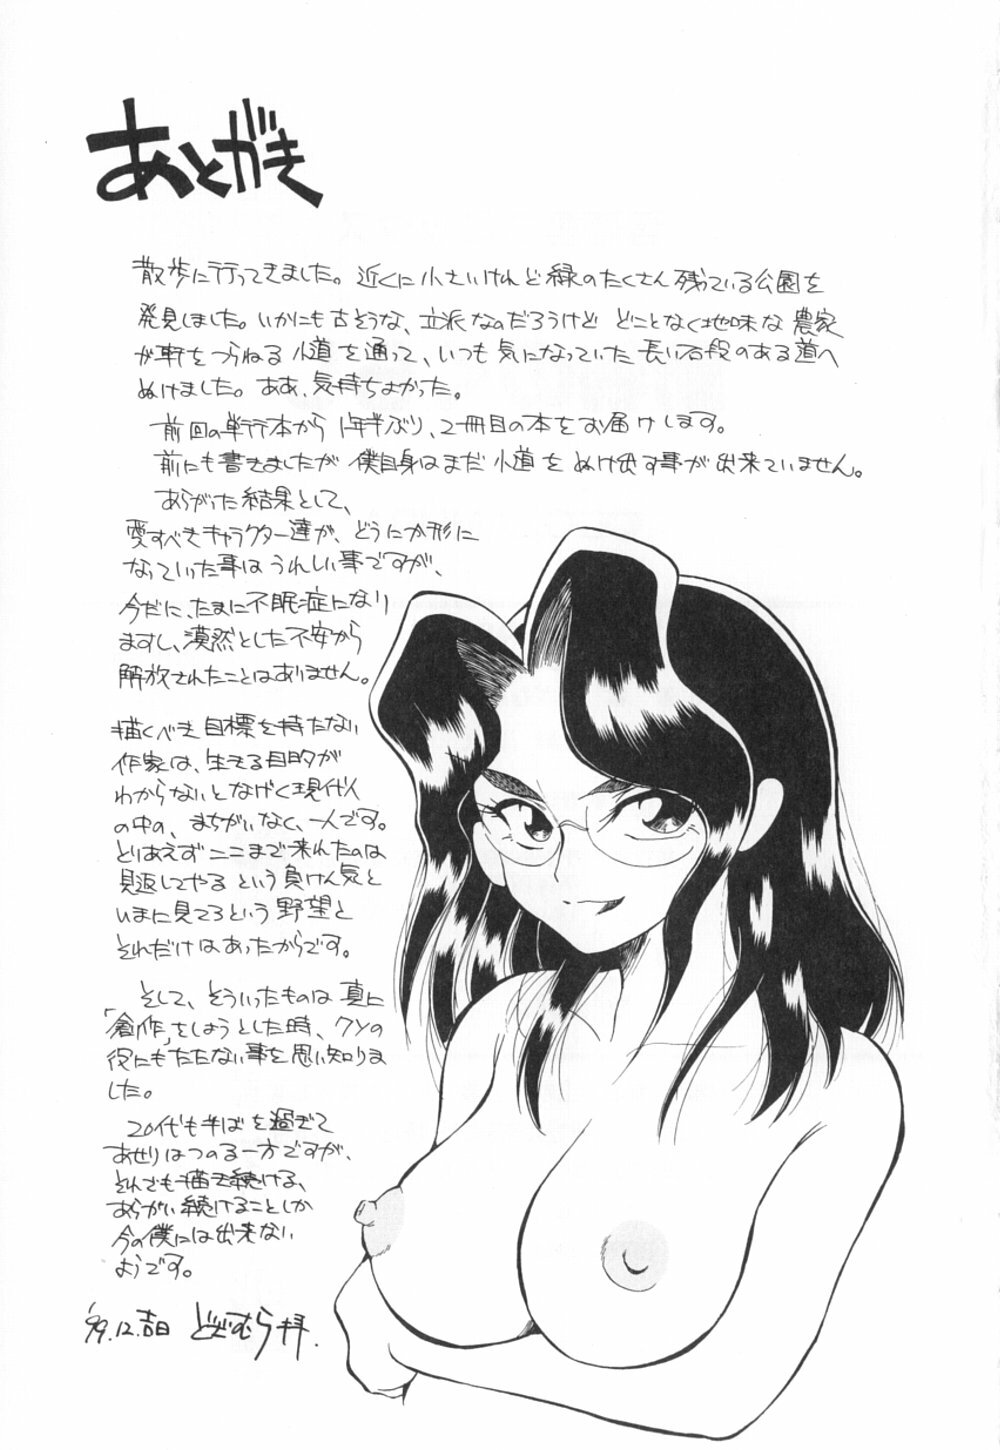 あとがき
散歩に行ってきました。近くに小さいけれど緑のたくさん残っている公園を
発見しました。いかにも古そうな、立派なのだろうけど どことなく地味な農家
が軒をつらねる小道を通って、いつも気になっていた長い石段のある道へ
ぬけました。ああ、気持ちよかった。
前回の単行本から1年半ぶり、2冊目の本をお届けします。
前にも書きましたが僕自身はまだ小道をぬけ出す事が出来ていません。
あらがった結果として、
愛すべきキャラクター達が、どうにか形に
なっていった事はうれしい事ですが、
今だに、たまに不眠症になり
ますし、漠然とした不安から
解放されたことはありません。
描くべき目標を持たない
作家は、生きる目的が
わからないとなげく現代人
の中の、まちがいなく、一人です。
とりあえずここまで来れたのは
見返してやるという負けん気と
いまに見てろという野望と
それだけはあったからです。
そして、そういったものは真に
「創作」をしようとした時、クソの
役にもたたない事を思い知りま
した。
20代も半ばを過ぎて
あせりはつのる一方ですが、
それでも描き続ける、
あらがい続けることしか
今の僕には出来ない
ようです。
'99.12.吉日 どざむら拝.